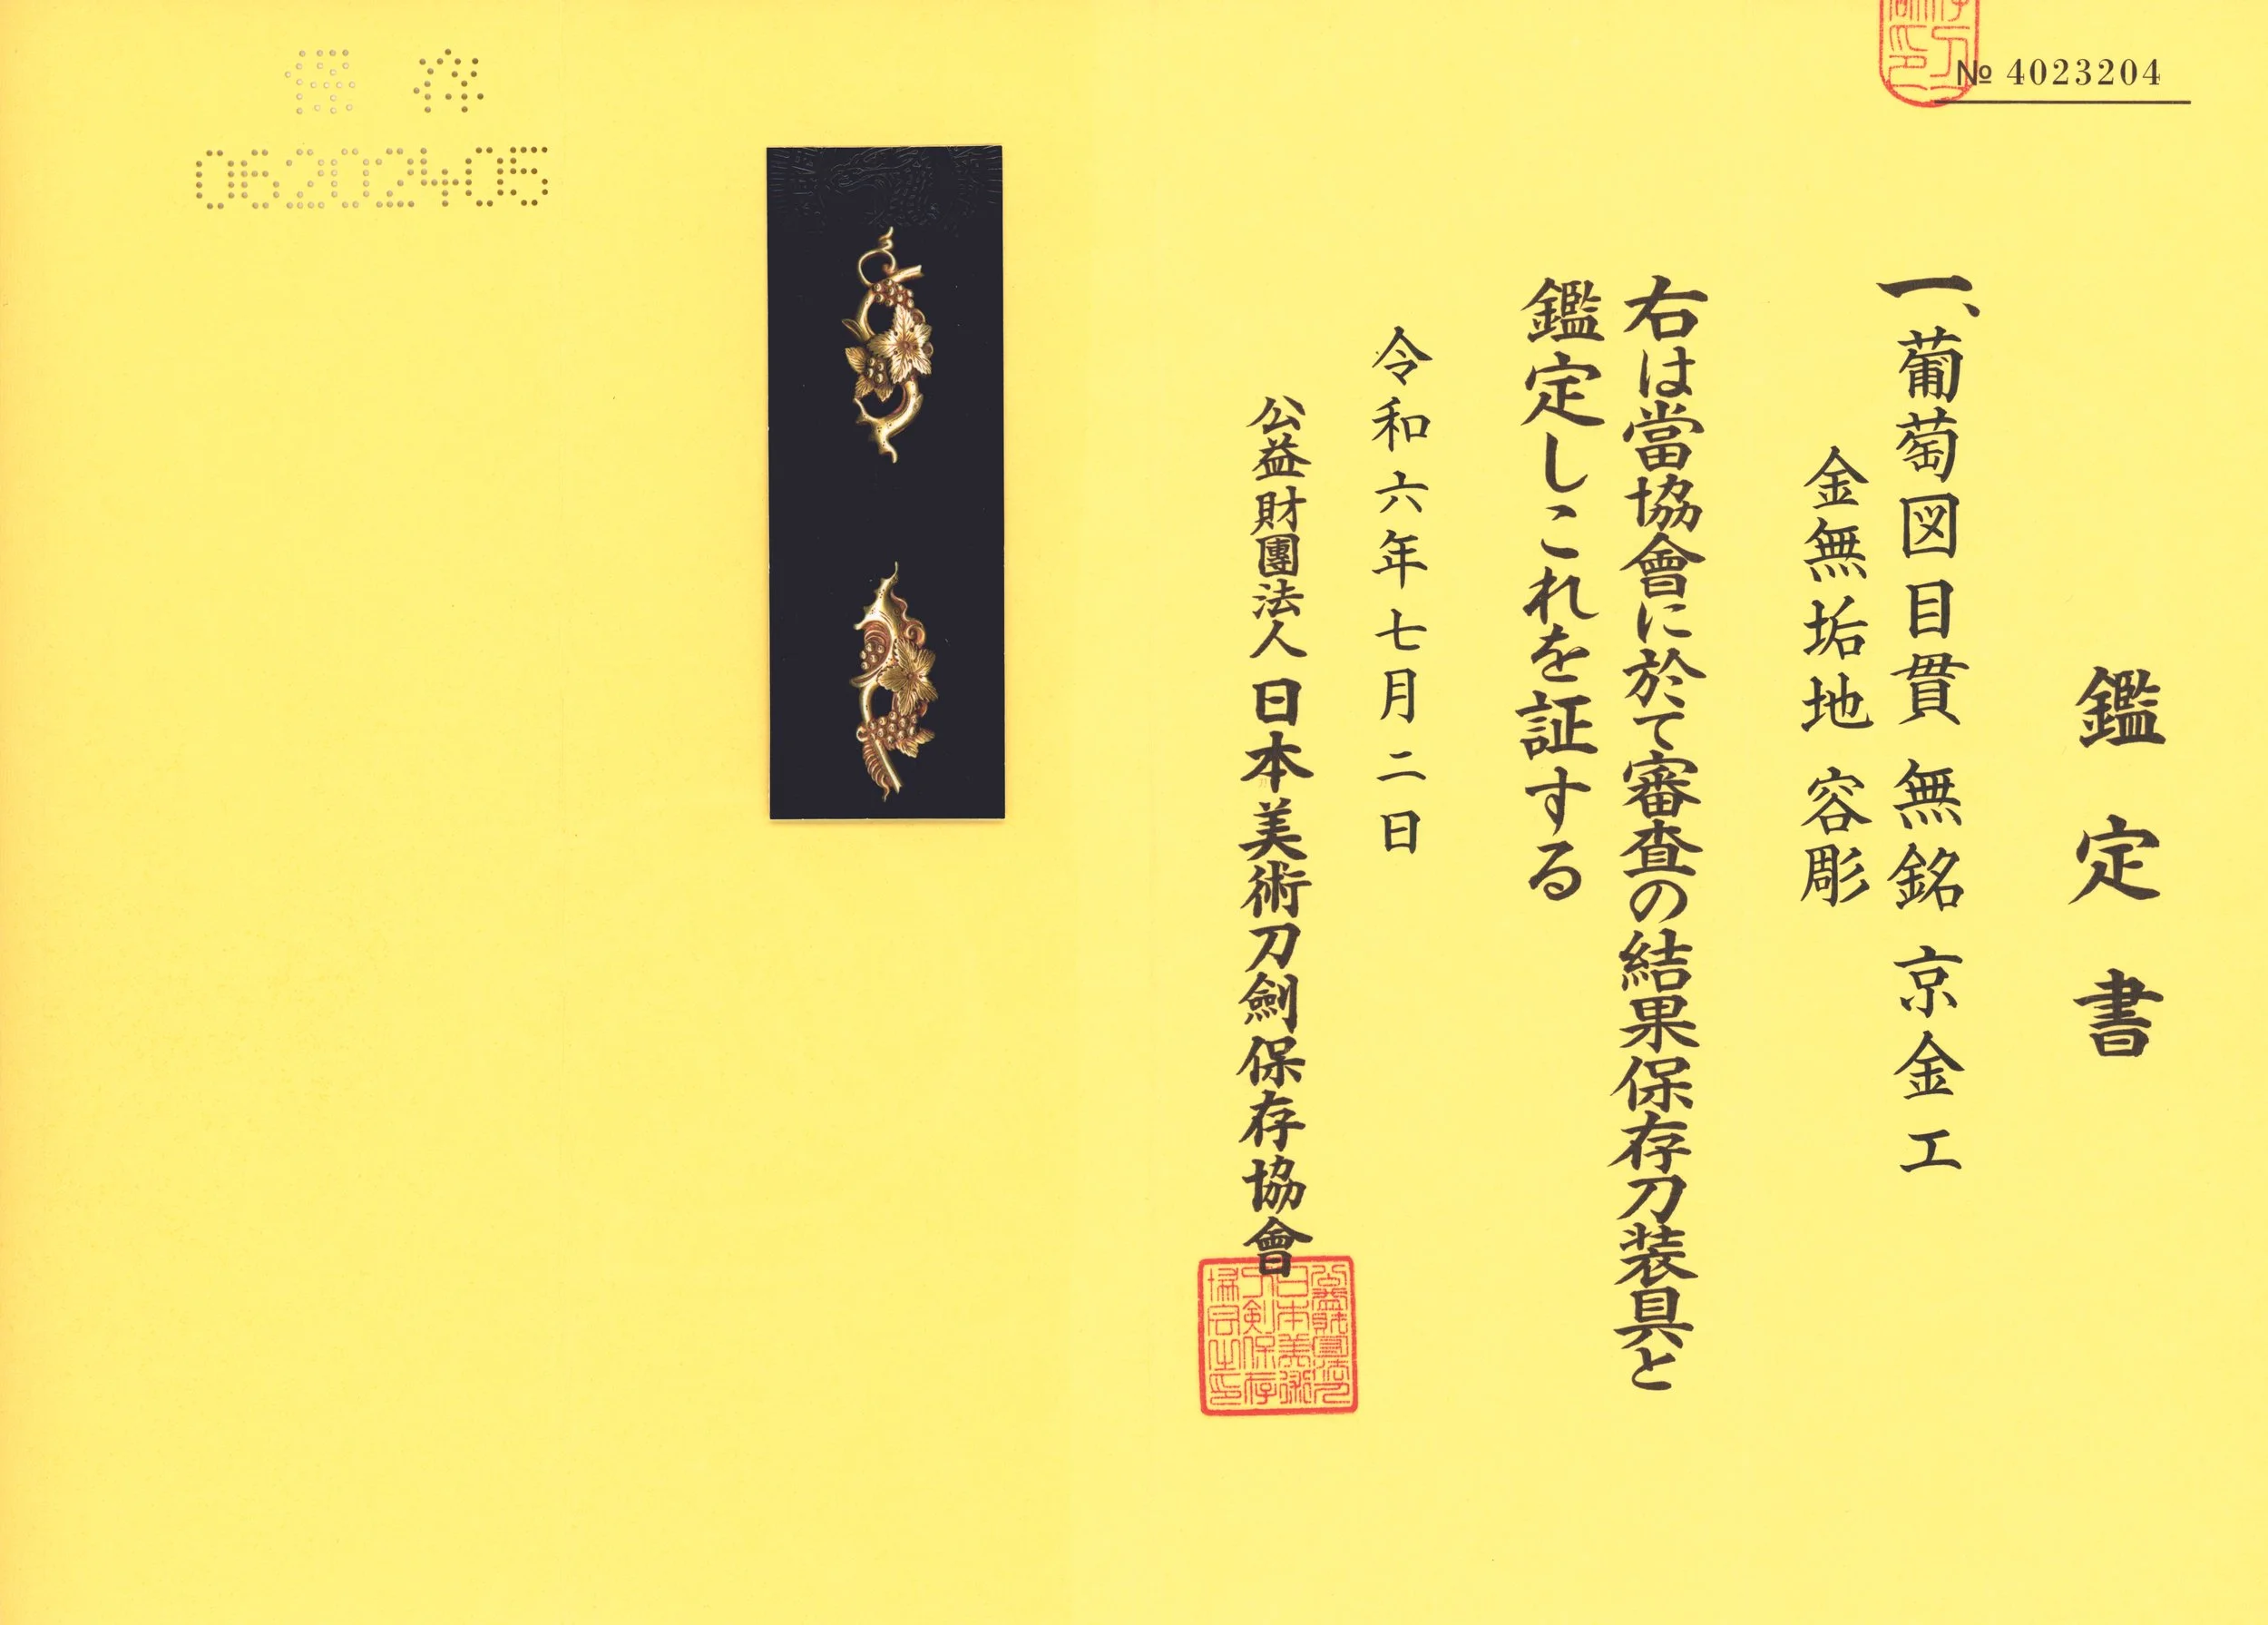 № 4023204
鑑定書
一、葡萄図目貫 無銘 京金工
金無垢地 容彫
右は當協會に於て審査の結果保存刀装具と
鑑定しこれを証する
令和六年七月二日
公益財團法人 日本美術刀劍保存協會
保存
06202405